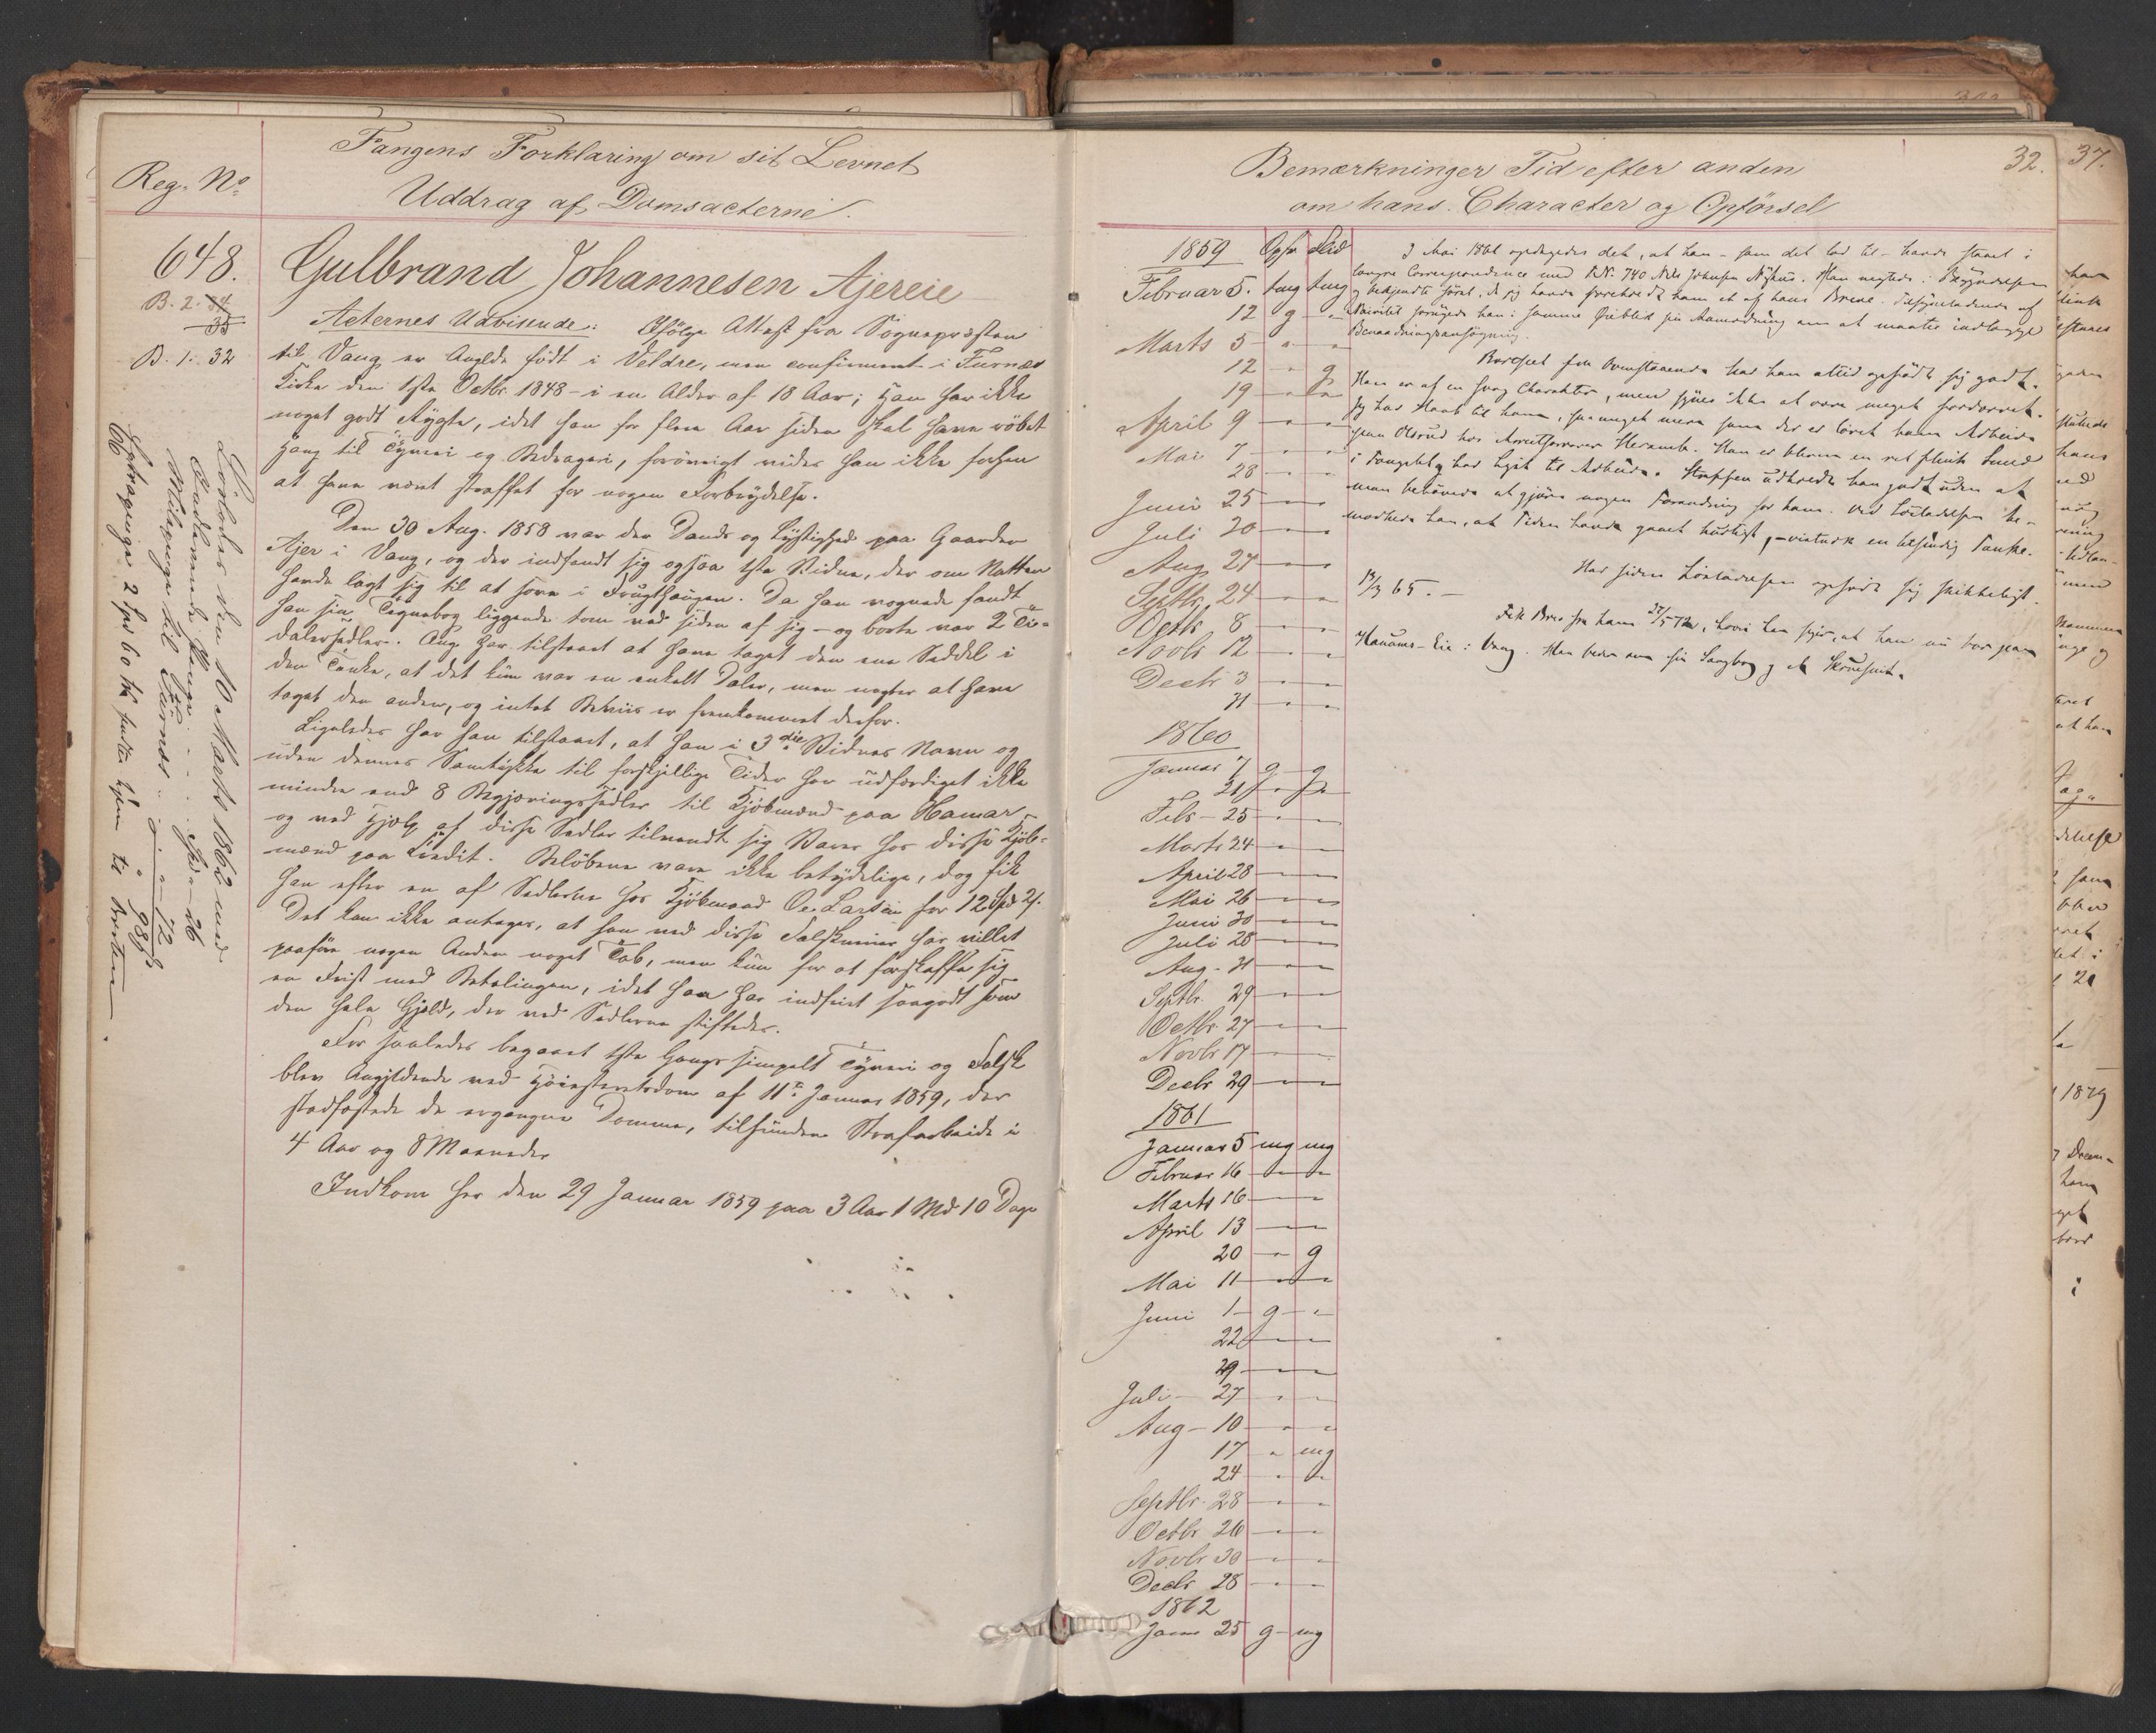 Fangens Forklaring om sit Levnet
Reg. No
Uddrag af Domsacterne.
648.
B. 2. 34
35
B. 1. 32
Gulbrand Johannesen Ajereie
Acternes Udvisende: Ifölge Attest fra Sognepræsten
til Vang er Angldn födt i Veldre, men confirmeret i Furnæs
Kirke den 1ste Octbr 1848 - i en Alder af 18 Aar; han har ikke
noget godt Rygte, idet han for flere Aar siden skal have röbet
Hang til Tyveri og Bedrageri, forövrigt vides han ikke forhen
at have været straffet for nogen Forbrydelse.
Den 30 Aug. 1858 var der Dands og Lystighed paa Gaarden
Ajer i Vang, og der indfandt sig ogsaa 1ste Vidne, der om Natten
havde lagt sig til at sove i Frugthaugen. Da han vognede fandt
han sin Tegnebog liggende tom ved siden af sig - og borte var 2 Ti-
dalersedler. Ang. har tilstaaet at have taget den ene Seddel i
den Tanke, at det kun var en enkelt Daler, men negter at have
taget den anden, og intet Beviis er fremkommet derfor.
Ligeledes har han tilstaaet, at han i 3die Vidnes Navn og
uden dennes Samtykke til forskjellige Tider har udfærdiget ikke
mindre end 8 Begjæringssedler til Kjöbmænd paa Hamar -
og ved Hjælp af disse Sedler tilvendt sig Varer hos disse Kjöb-
mænd paa Credit. Belöbene vare ikke betydelige, dog fik
han efter en af Sedlerne hos Kjöbmand Oe. Larsen for 12 Spd 2 .
Det kan ikke antages, at han ved disse Falsknerier har villet
paaföre nogen Anden noget Tab, men kun for at forskaffe sig
en Frist med Betalingen, idet han har indfriet saagodt som
den hele Gjeld, der ved Sedlerne stiftedes.
For saaledes begaaet 1ste Gangs simpelt Tyveri og Falsk
blev Angjeldende ved Höiesteretsdom af 11te Januar 1859, der
stadfæstede de ergangne Domme, tilfunden Strafarbeide i
4 Aar og 8 Maaneder
Indkom her den 29 Januar 1859 paa 3 Aar 1 Md 10 Dage
Lösladес den 10 Marts 1862 med
Indkomne Penge . . . Spd " - 26
Milepenge til Furnæs . . " - " - 72
98 ß
Opdragspenge 2 Spd 60 ß
32.
37.
Bemærkninger Tid efter anden
om hans Character og Opförsel
1859 Opfsr Flid
Februar 5. tmg tmg
12 g "
Marts 5 " "
12 " g
19 " "
April 9 " "
Mai 7 " "
28 " "
Juni 25 " "
Juli 30 " "
Aug 27 " "
Septbr 24 " "
Octbr 8 " "
Novbr 12 " "
Decbr 3 " "
31 " "
1860
Januar 7 g g
21 " "
Febr 25 " "
Marts 24 " "
April 28 " "
Mai 26 " "
Juni 30 " "
Juli 28 " "
Aug 31 " "
Septbr. 29 " "
Octbr 27 " "
Novbr 17 " "
Decbr 29 " "
1861
Januar 5 mg mg
Februar 16 " "
Marts 16 " "
April 13 " "
20 " g
Mai 11 " "
Juni 1 g "
22 " "
29 " "
Juli 27 " "
Aug 10 " "
17 " mg
24 " "
Septbr. 28 " "
Octbr 26 " "
Novbr 30 " "
Decbr 28 " "
1862
Janr 25 g mg
3 Mai 1861 opdagedes det, at han - som det lod til - havde staaet i
længre Correspondence med F.N. 740 Nils Johnsen Nyhus. Han negtede i Begyndelsen
og bekjendte först, da jeg havde foreholdt ham et af hans Breve.
Bevilet fornyede han i samme Öieblik sin Anmodning om at maatte indlægge
Benaadningsansögning.
Bortseet fra Ovenstaaende har han altid opfört sig godt.
Han er af en svag Character, men synes ikke at være meget fordærvet.
Jeg har Haab til ham, saameget mere som der er lovet ham Arbeide
paa Olsrud hos Arrestforvarer Heramb. Han er bleven en ret flink Smed
i Fængslet og har Lyst til Arbeide. Straffen udholdt han godt uden at
man behövede at gjöre nogen Forandring for ham. Ved Lösladelsen be-
mærkede han, at Tiden havde gaaet hurtigt,
Har siden Lösladelsen opfört sig skikkeligt.
13/3 65. -
Fik Brev fra ham 27/5 72, hvori han siger, at han nu bor paa
Eie i Vang. Han beder om sin Sangbog og et Skruesnit.